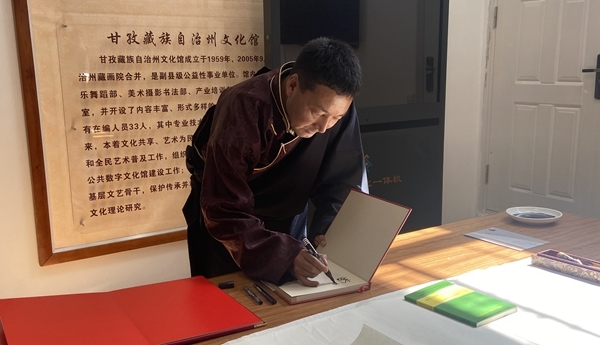 甘孜藏族自治州文化馆
甘孜藏族自治州文化馆成立于1959年、2005年9
治州藏画院合并，是副县级公益性事业单位。馆内
乐舞蹈部、美术摄影书法部、产业培训
室，并开设了内容丰富、形式多样的
有在编人员33人，其中专业技术
来，本着文化共享、艺术为民
和全民艺术普及工作，组织
公共数字文化馆建设工作，
基层文艺骨干，保护传承
文化理论研究。
一体机